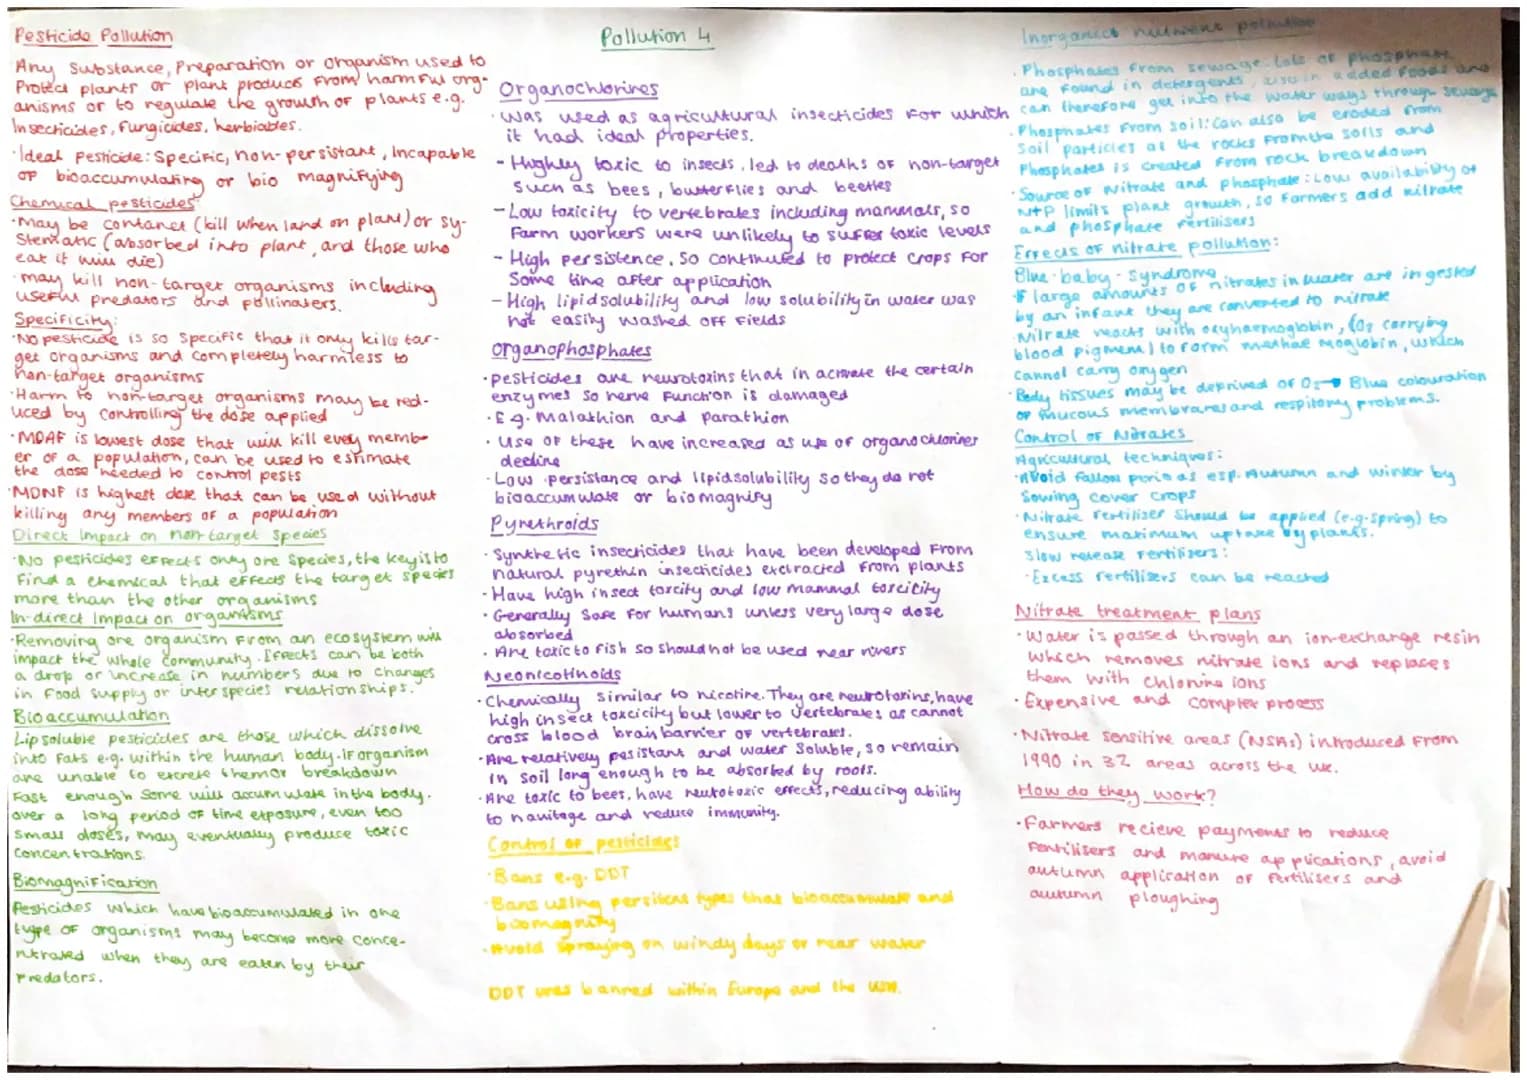 Pesticide Pollution
Any Substance, Preparation or Organism used to
Protect plants or plant products from harmful org-
anisms or to regulate the growth of plants e.g.
Insecticides, fungicides, herbiables.
·Ideal Pesticide: Specific, non-persistant, Incapable
of bioaccumulating or bio magnifying
Chemical pesticides:
·May be contanct (kill when land on plant) or sy-
stematic (absorbed into plant, and those who
eat it will die)
·may kill non-target organisms including
useful predators and pollinaters.
Specificity:
·No pesticide is so specific that it only kills tar-
get organisms and completely harmless to
non-target organisms
·Harm to non-target organisms may be red-
uced by controlling the dose applied
·MDAF is lowest dose that will kill every memb-
er of a population, can be used to estimate
the dose needed to control pests
·MDNF is highest dose that can be used without
killing any members of a population
Direct Impact on non-target species
·No pesticides effects only one species, the key is to
find a chemical that effects the target species
more than the other organisms
In-direct Impact on organisms
·Removing one organism from an ecosystem will
impact the whole community. Effects can be both
a drop or increase in numbers due to changes
in food supply or inter species relationships.
Bioaccumulation
Lipsoluble pesticides are those which dissolve
into fats e.g. within the human body. If organism
are unable to excrete them or breakdown
fast enough some will accumulate in the body.
over a long period of time exposure, even too
small doses, may eventually produce toxic
concentrations.
Biomagnification
Pesticides which have bioaccumulated in one
type of organisms may become more conce-
ntrated when they are eaten by their
predators.
Pollution 4
Organochlorines
·Was used as agricultural insecticides for which
it had ideal properties.
- Highly toxic to insects, led to deaths of non-target
such as bees, butterflies and beetles
- Low toxicity to vertebrates including mammals, so
farm workers were unlikely to suffer toxic levels
- High persistence, so continued to protect crops for
some time after application
- High lipid solubility and low solubility in water was
not easily washed off fields
Organophosphates
·pesticides are neurotoxins that in activate the certain
enzymes so nerve function is damaged
·E.g. Malathion and parathion
·Use of these have increased as use of organochlorines
decline
·Low persistance and lipid solubility so they do not
bioaccumulate or biomagnify
Pyrethroids
·Synthetic insecticides that have been developed from
natural pyrethin insecticides exctracted from plants
·Have high insect toxcity and low mammal toxcicity
·Generally safe for humans unless very large dose
absorbed
·Are toxic to fish so should not be used near rivers
Neonicotinoids
·Chemically similar to nicotine. They are neurotoxins, have
high insect toxcicity but lower to vertebrates as cannot
cross blood brain barrier of vertebrates.
·Are relatively pesistant and water soluble, so remain
in soil long enough to be absorbed by roots.
·Are toxic to bees, have neurotoxic effects, reducing ability
to navitage and reduce immunity.
Control of pesticides
·Bans e.g. DDT
·Bans using persitens types that bioaccumulate and
biomagnify
·Avoid spraying on windy days or near water
DDT was banned within Europe and the UK.
Inorganic nutrient pollution
·Phosphates from sewage: lots of phosphate
are found in detergents, also in added foods and
can therefore get into the water ways through sewage
·Phosphates from soil: Can also be eroded from
soil particles as the rocks from the soils and
Phosphates is created from rock breakdown
·Source of Nitrate and phosphate: Low availability of
N+P limits plant growth, so farmers add nitrate
and phosphate fertilisers
Effects of nitrate pollution:
Blue-baby-syndrome
·If large amounts of nitrates in water are ingested
by an infant they are converted to nitrate
·Nitrate reacts with oxyhaemoglobin, (O2 carrying
blood pigment) to form methaemoglobin, which
cannot carry oxygen
·Body tissues may be deprived of O2 → Blue colouration
of mucous membranes and respitory problems.
Control of Nitrates
Agricultural techniques:
·Avoid fallow periods esp. Autumn and winter by
sowing cover crops
·Nitrate fertilizer should be applied (e.g. spring) to
ensure maximum uptake by plants.
Slow release fertilisers:
·Excess fertilisers can be reached
Nitrate treatment plans
·Water is passed through an ion-exchange resin
which removes nitrate ions and replaces
them with chlorine ions
·Expensive and complex process
·Nitrate sensitive areas (NSAs) introduced from
1990 in 32 areas across the UK.
How do they work?
·Farmers recieve payments to reduce
fertilisers and manure applications, avoid
autumn application of fertilisers and
autumn ploughing